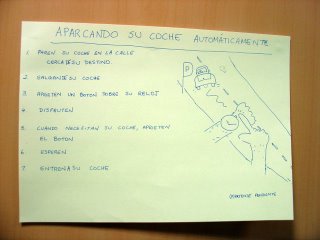 APARCANDO SU COCHE AUTOMATICAMENTE
1. PAREN SU COCHE EN LA CALLE
CERCA DE SU DESTINO.
2. SALGAN DE SU COCHE
3. APRIETEN UN BOTON SOBRE SU RELOJ
4. DISFRUTEN
5. CUANDO NECESITAN SU COCHE, APRIETEN
EL BOTON
6. ESPEREN
7. ENTRON A SU COCHE
P